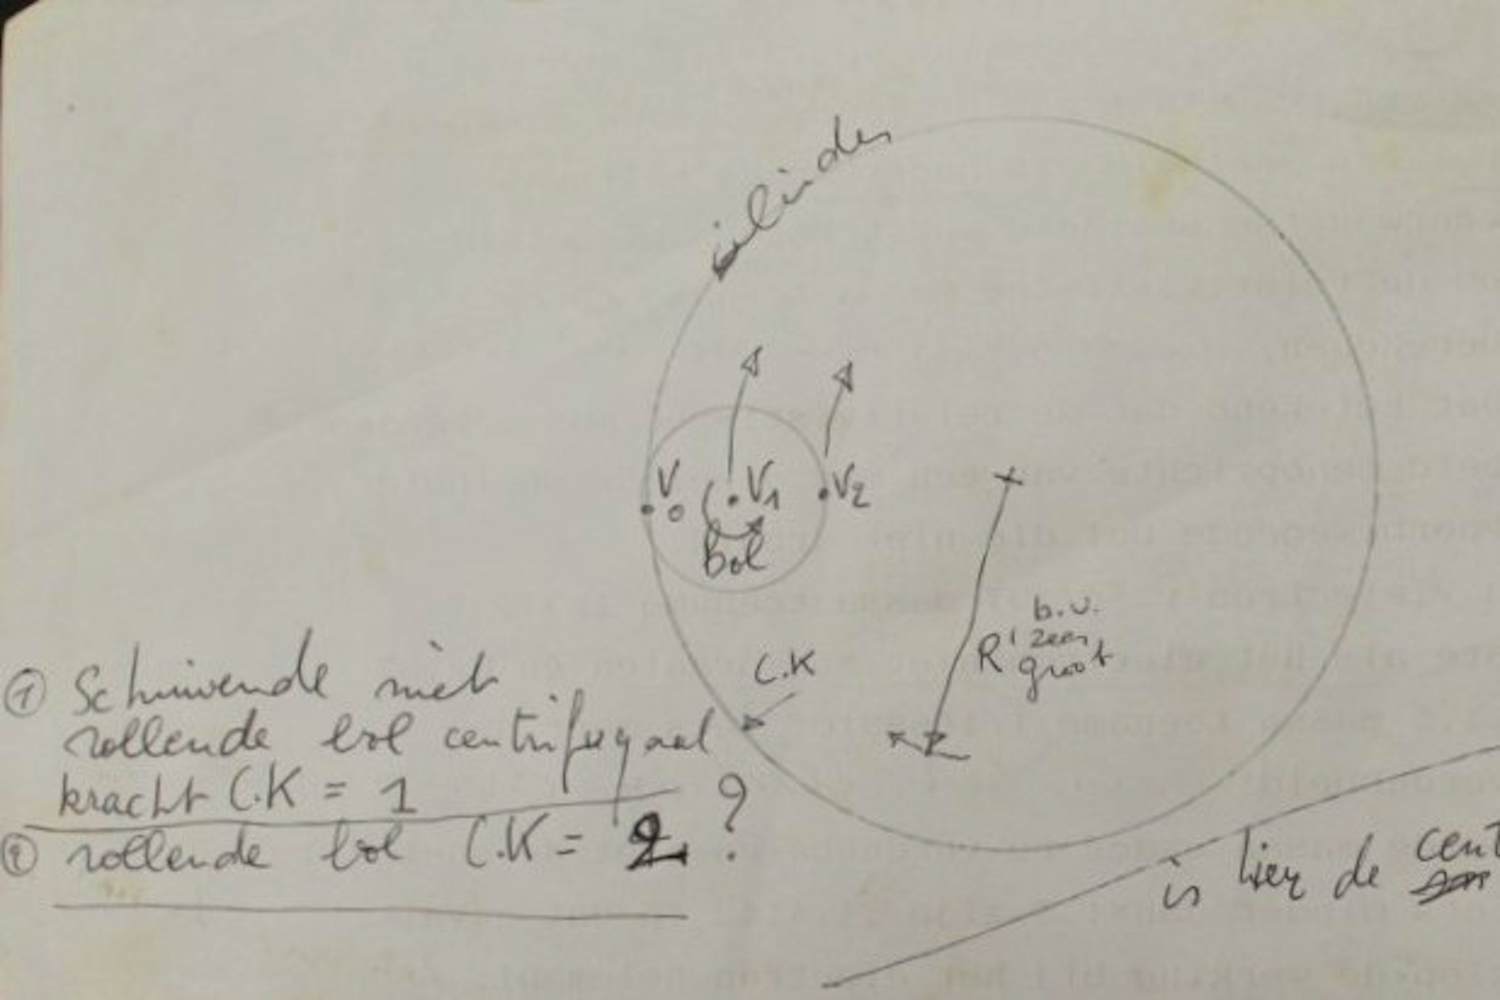 cilinder
V0
V1
V2
bol
b.v.
R' zeer
groot
C.K
① Schuivende niet
rollende bol centrifugaal
kracht C.K = 1
② rollende bol C.K = 2 ?
is hier de cent